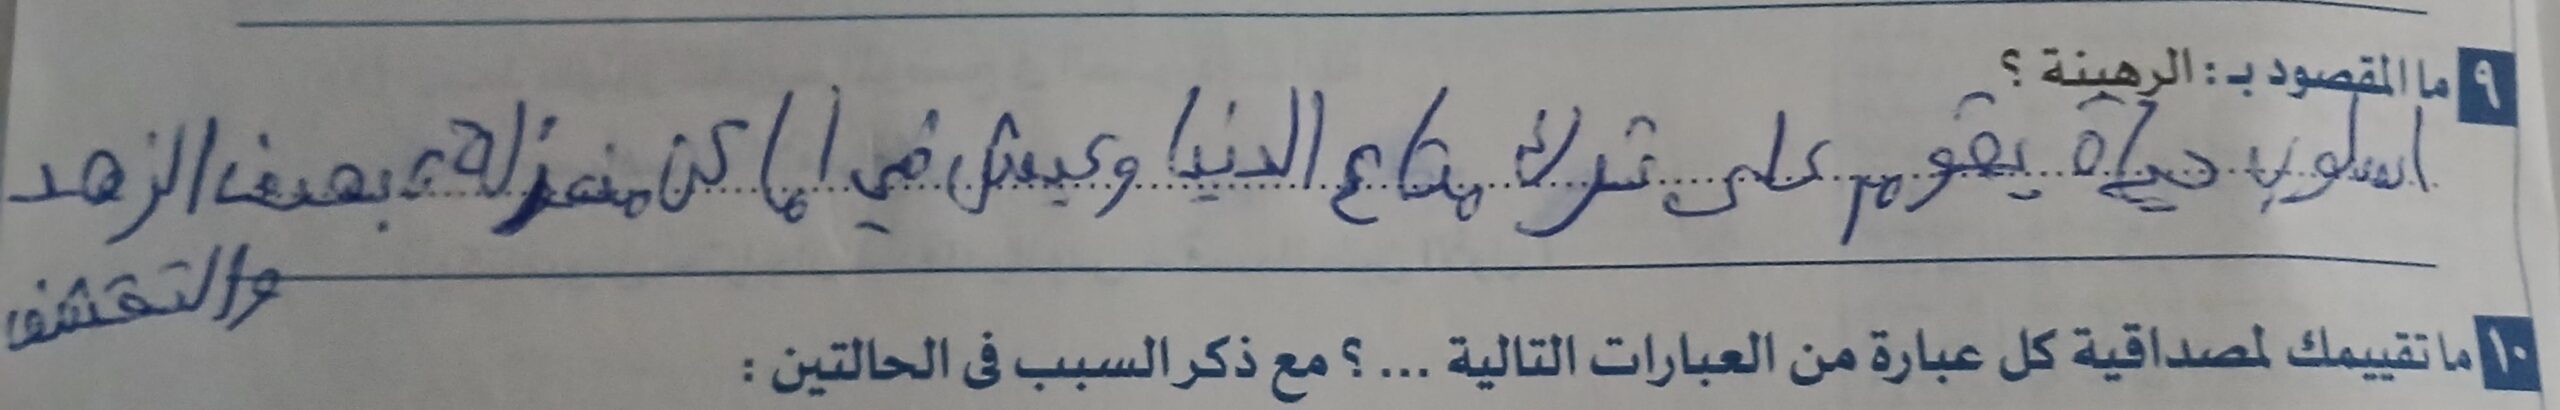 ٩ ما المقصود بـ : الرهينة ؟
اسلوب حياة يقوم على ترك متاع الدنيا وعيش في أماكن منعزلة بهدف الزهد
والتقشف
١٠ ما تقييمك لمصداقية كل عبارة من العبارات التالية ... ؟ مع ذكر السبب فى الحالتين :